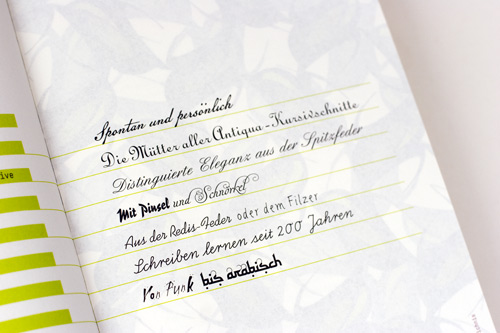 ive
Spontan und persönlich
Die Mütter aller Antiqua-Kursivschnitte
Distinguierte Eleganz aus der Spitzfeder
Mit Pinsel und Schnörkel
Aus der Redis-Feder oder dem Filzer
Schreiben lernen seit 200 Jahren
Von Punk bis arabisch